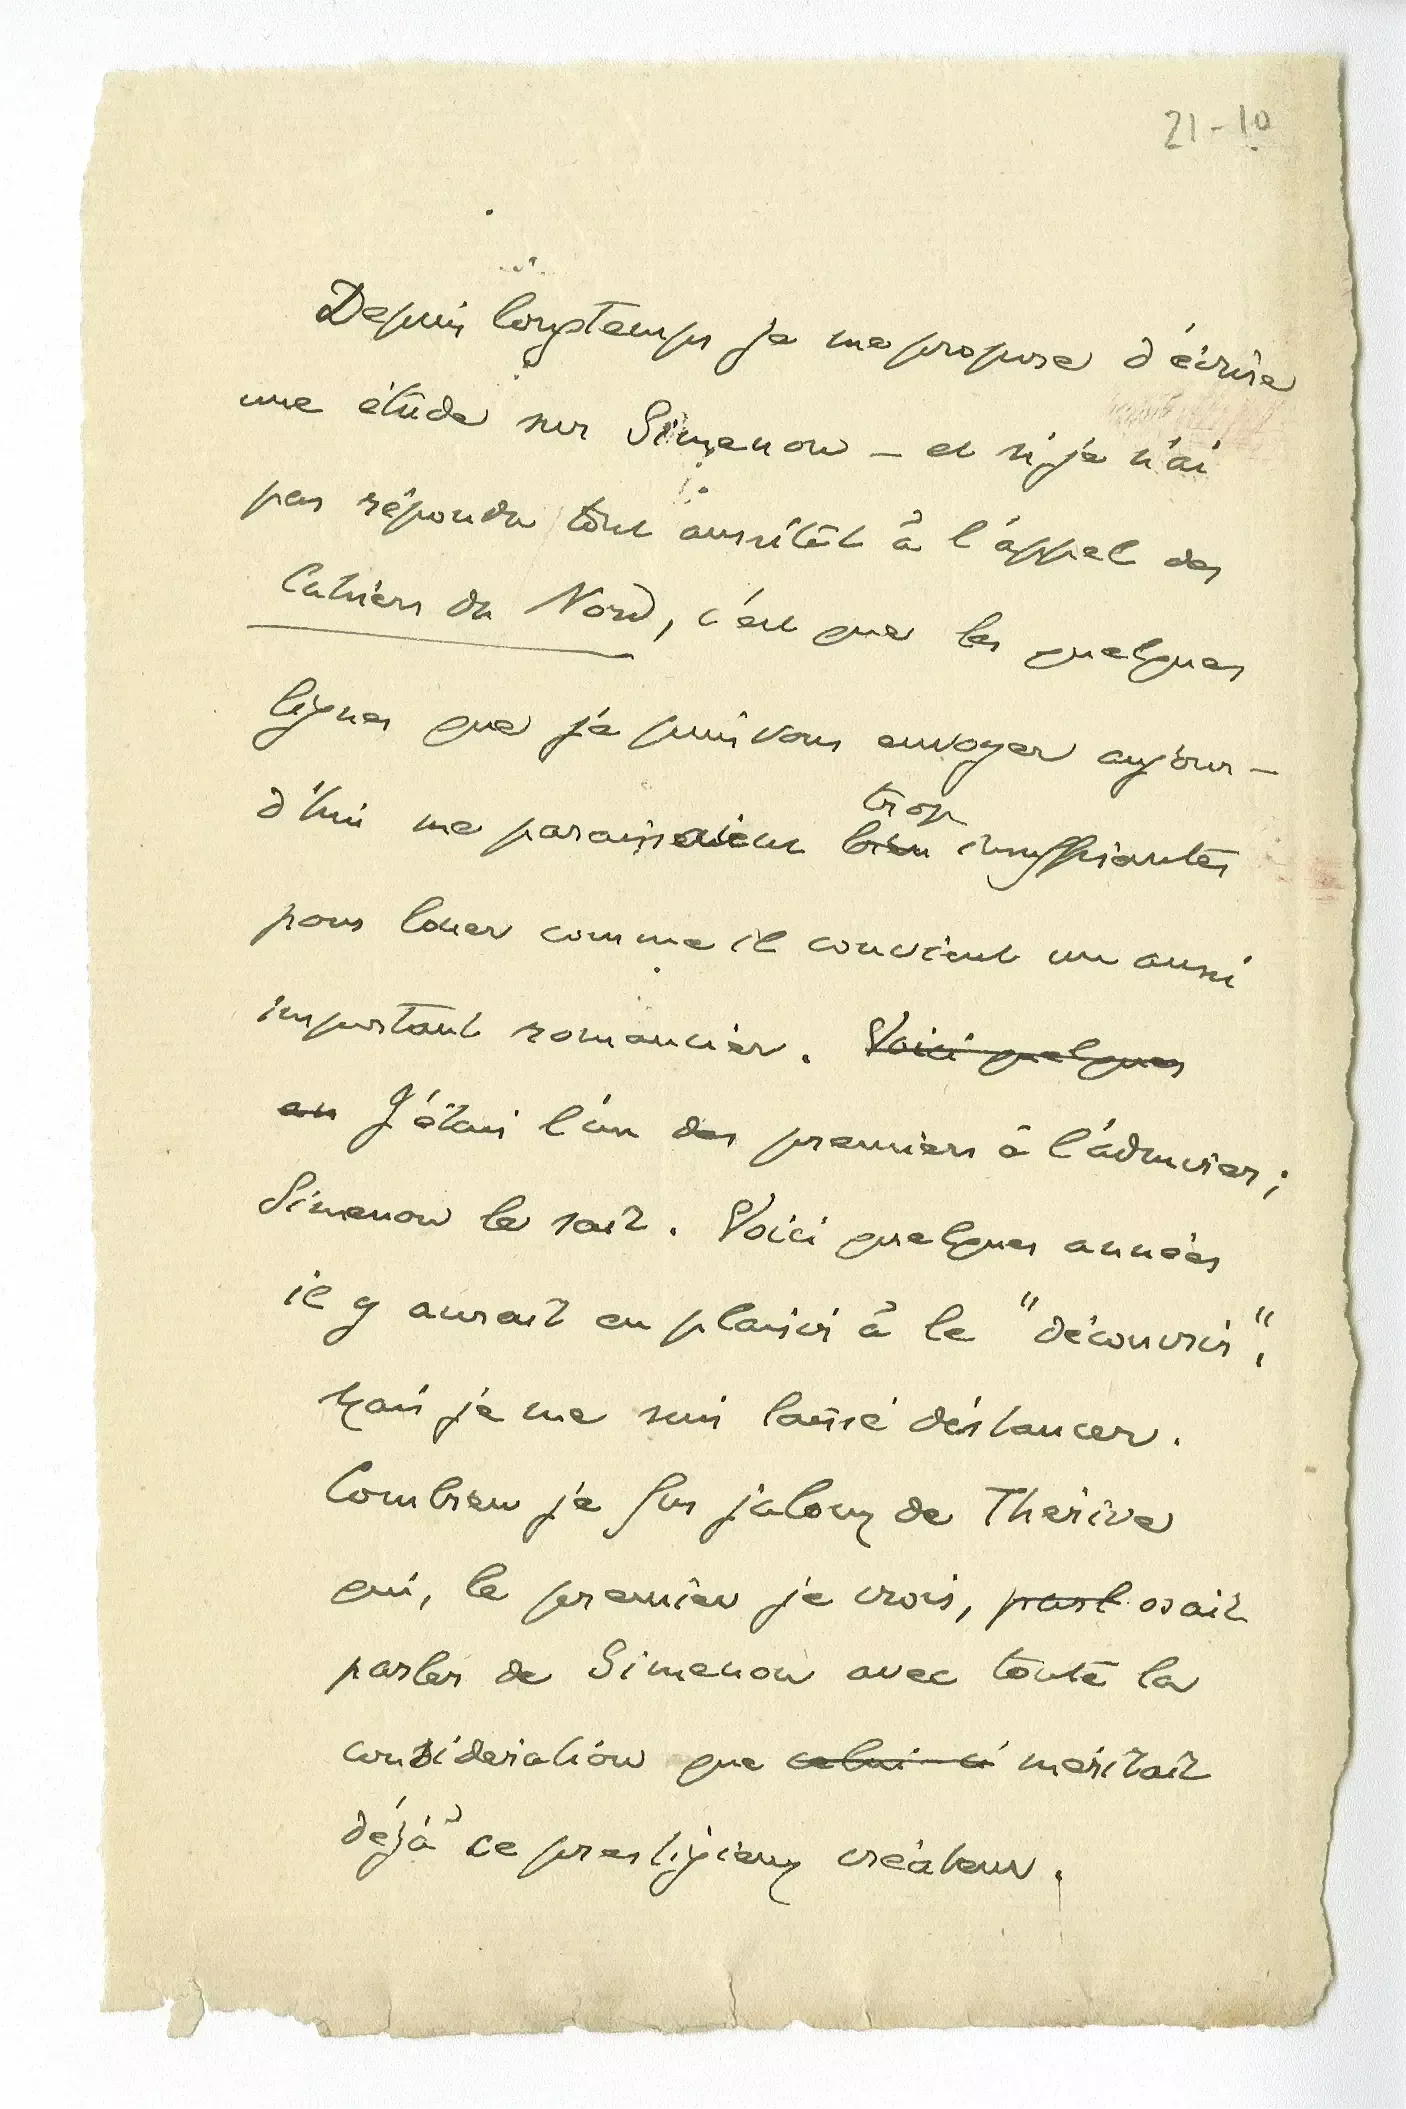 21-10
Depuis longtemps je me propose d'écrire
une étude sur Simenon — et si je n'ai
pas répondu tout aussitôt à l'appel des
Cahiers du Nord, c'est que les quelques
lignes que je puis vous envoyer aujour-
d'hui me paraissaient bien trop insuffisantes
pour louer comme il convient un aussi
important romancier. Voici quelques
an J'étais l'un des premiers à l'admirer;
Simenon le sait. Voici quelques années
il y aurait eu plaisir à le "découvrir".
Mais je me suis laissé distancer.
Combien je fus jaloux de Therive
qui, le premier je crois, parl osait
parler de Simenon avec toute la
considération que celui-ci méritait
déjà ce prestigieux créateur.